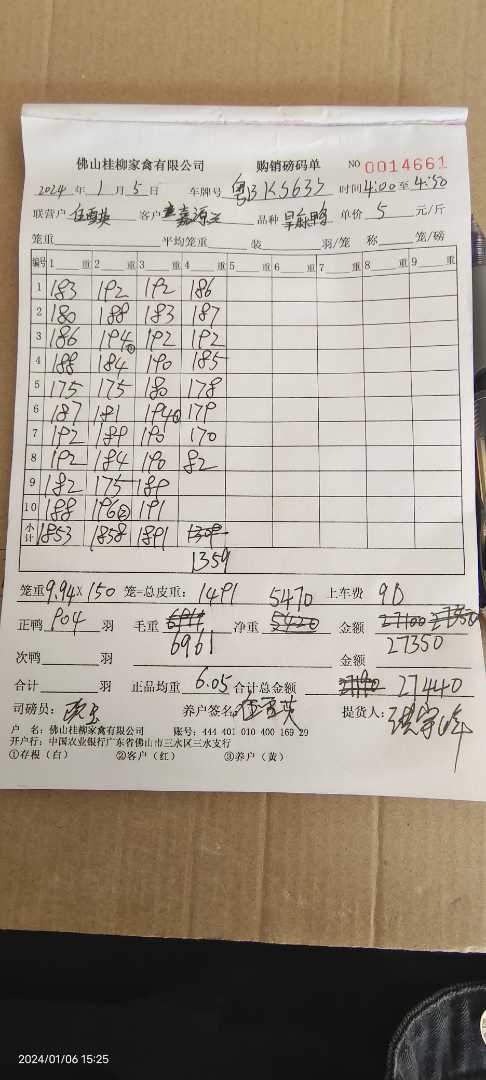 佛山桂柳家禽有限公司 购销磅码单 NO 0014661
2024年1月5日 车牌号 粤BKS635 时间4:00至4:50
联营户 客户 嘉源 品种 鸭 单价 5 元/斤
笼重: 平均笼重 装 羽/笼 称 笼/磅
编号 1 重 2 重 3 重 4 重 5 重 6 重 7 重 8 重 9 重
1 183 192 192 186
2 180 188 183 187
3 186 194① 192 192
4 188 184 190 185
5 175 175 180 178
6 187 181 194① 179
7 192 189 190 170
8 192 184 190 82
9 182 175 189
10 188 196② 191
小计 1853 1858 1891 1309
1359
笼重9.94×150 笼-总皮重: 1491 5470 上车费 90
正鸭 904 羽 毛重 6911 净重 5420 金额 27100 27350
6961 27350
次鸭 羽 金额
合计 羽 正品均重 6.05 合计总金额 27190 27440
司磅员: 养户签名: 提货人:
户 名: 佛山桂柳家禽有限公司 账号: 444 401 010 400 169 29
开户行: 中国农业银行广东省佛山市三水区三水支行
①存根(白) ②客户(红) ③养户(黄)
2024/01/06 15:25